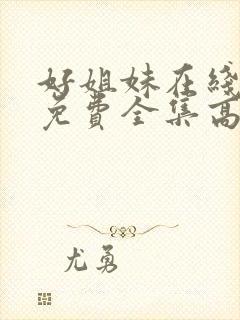 好姐妹在綫
免費全集高
尤勇